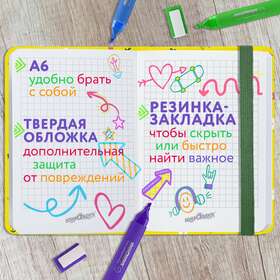 А6
удобно брать
с собой
ТВЕРДАЯ
ОБЛОЖКА
дополнительная
защита
от повреждений
РЕЗИНКА-
ЗАКЛАДКА
чтобы скрыть
или быстро
найти важное